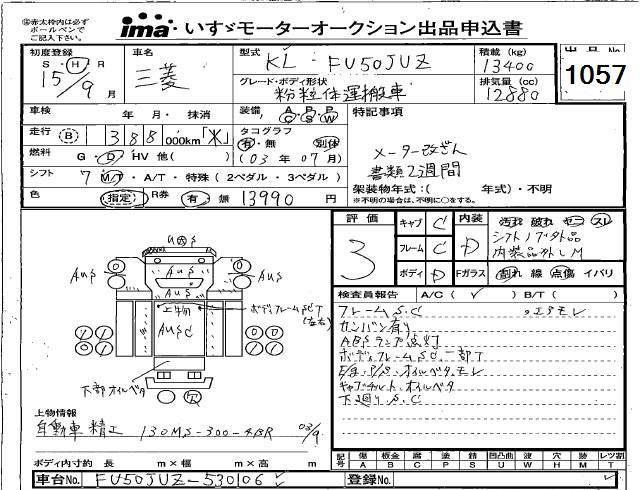 ※赤太枠内は必ず
ボールペンで
ご記入下さい。
ima いすゞモーターオークション出品申込書
初度登録 車名 型式 積載 (kg) 出品No
S・H・R
15/9月 三菱 KL-FU50JUZ 13400
グレード・ボディ形状 排気量 (cc)
粉粒体運搬車 12880
1057
車検 年・月・抹消 装備 A/C P/S P/W 特記事項
走行 B 388 000km「米」 タコグラフ 有・無 別体
メーター改ざん
燃料 G・D・HV 他( ) (03年07月) 書類2週間
シフト 7 M/T・A/T・特殊(2ペダル・3ペダル) 架装物年式:( 年式)・不明
※不明の場合は、不明に○をする。
色 指定 R券 有・無 13990円
評価 キャブ C 内装 汚れ 破れ ヤニ スレ
3 フレーム C D シフトノブ外品
内装品外しM
ボディ D Fガラス 割れ 線 点傷 イバリ
検査員報告 A/C( ) B/T( )
フレームS.C ・エアモレ
カンバン有り
ABSランプ点灯
ボディフレームSC、一部T
E/g.P/S.オイルベタモレ
キャブチルト.オイルベタ
下廻りS.C
U大S
AUS
AUS
AUS
AUS
上物
AUSC
ボディフレームSCT
(左右)
下部オイルベタ
上物情報
自動車精工 130MS-300-4BR 03/9
ボディ内寸約 長 m×幅 m×高 m
記号 傷A 板金B 腐C 塗P 錆S 凹凸曲U 波W 穴H 跡M レツ割T
車台No. FU50JUZ-530106 登録No.